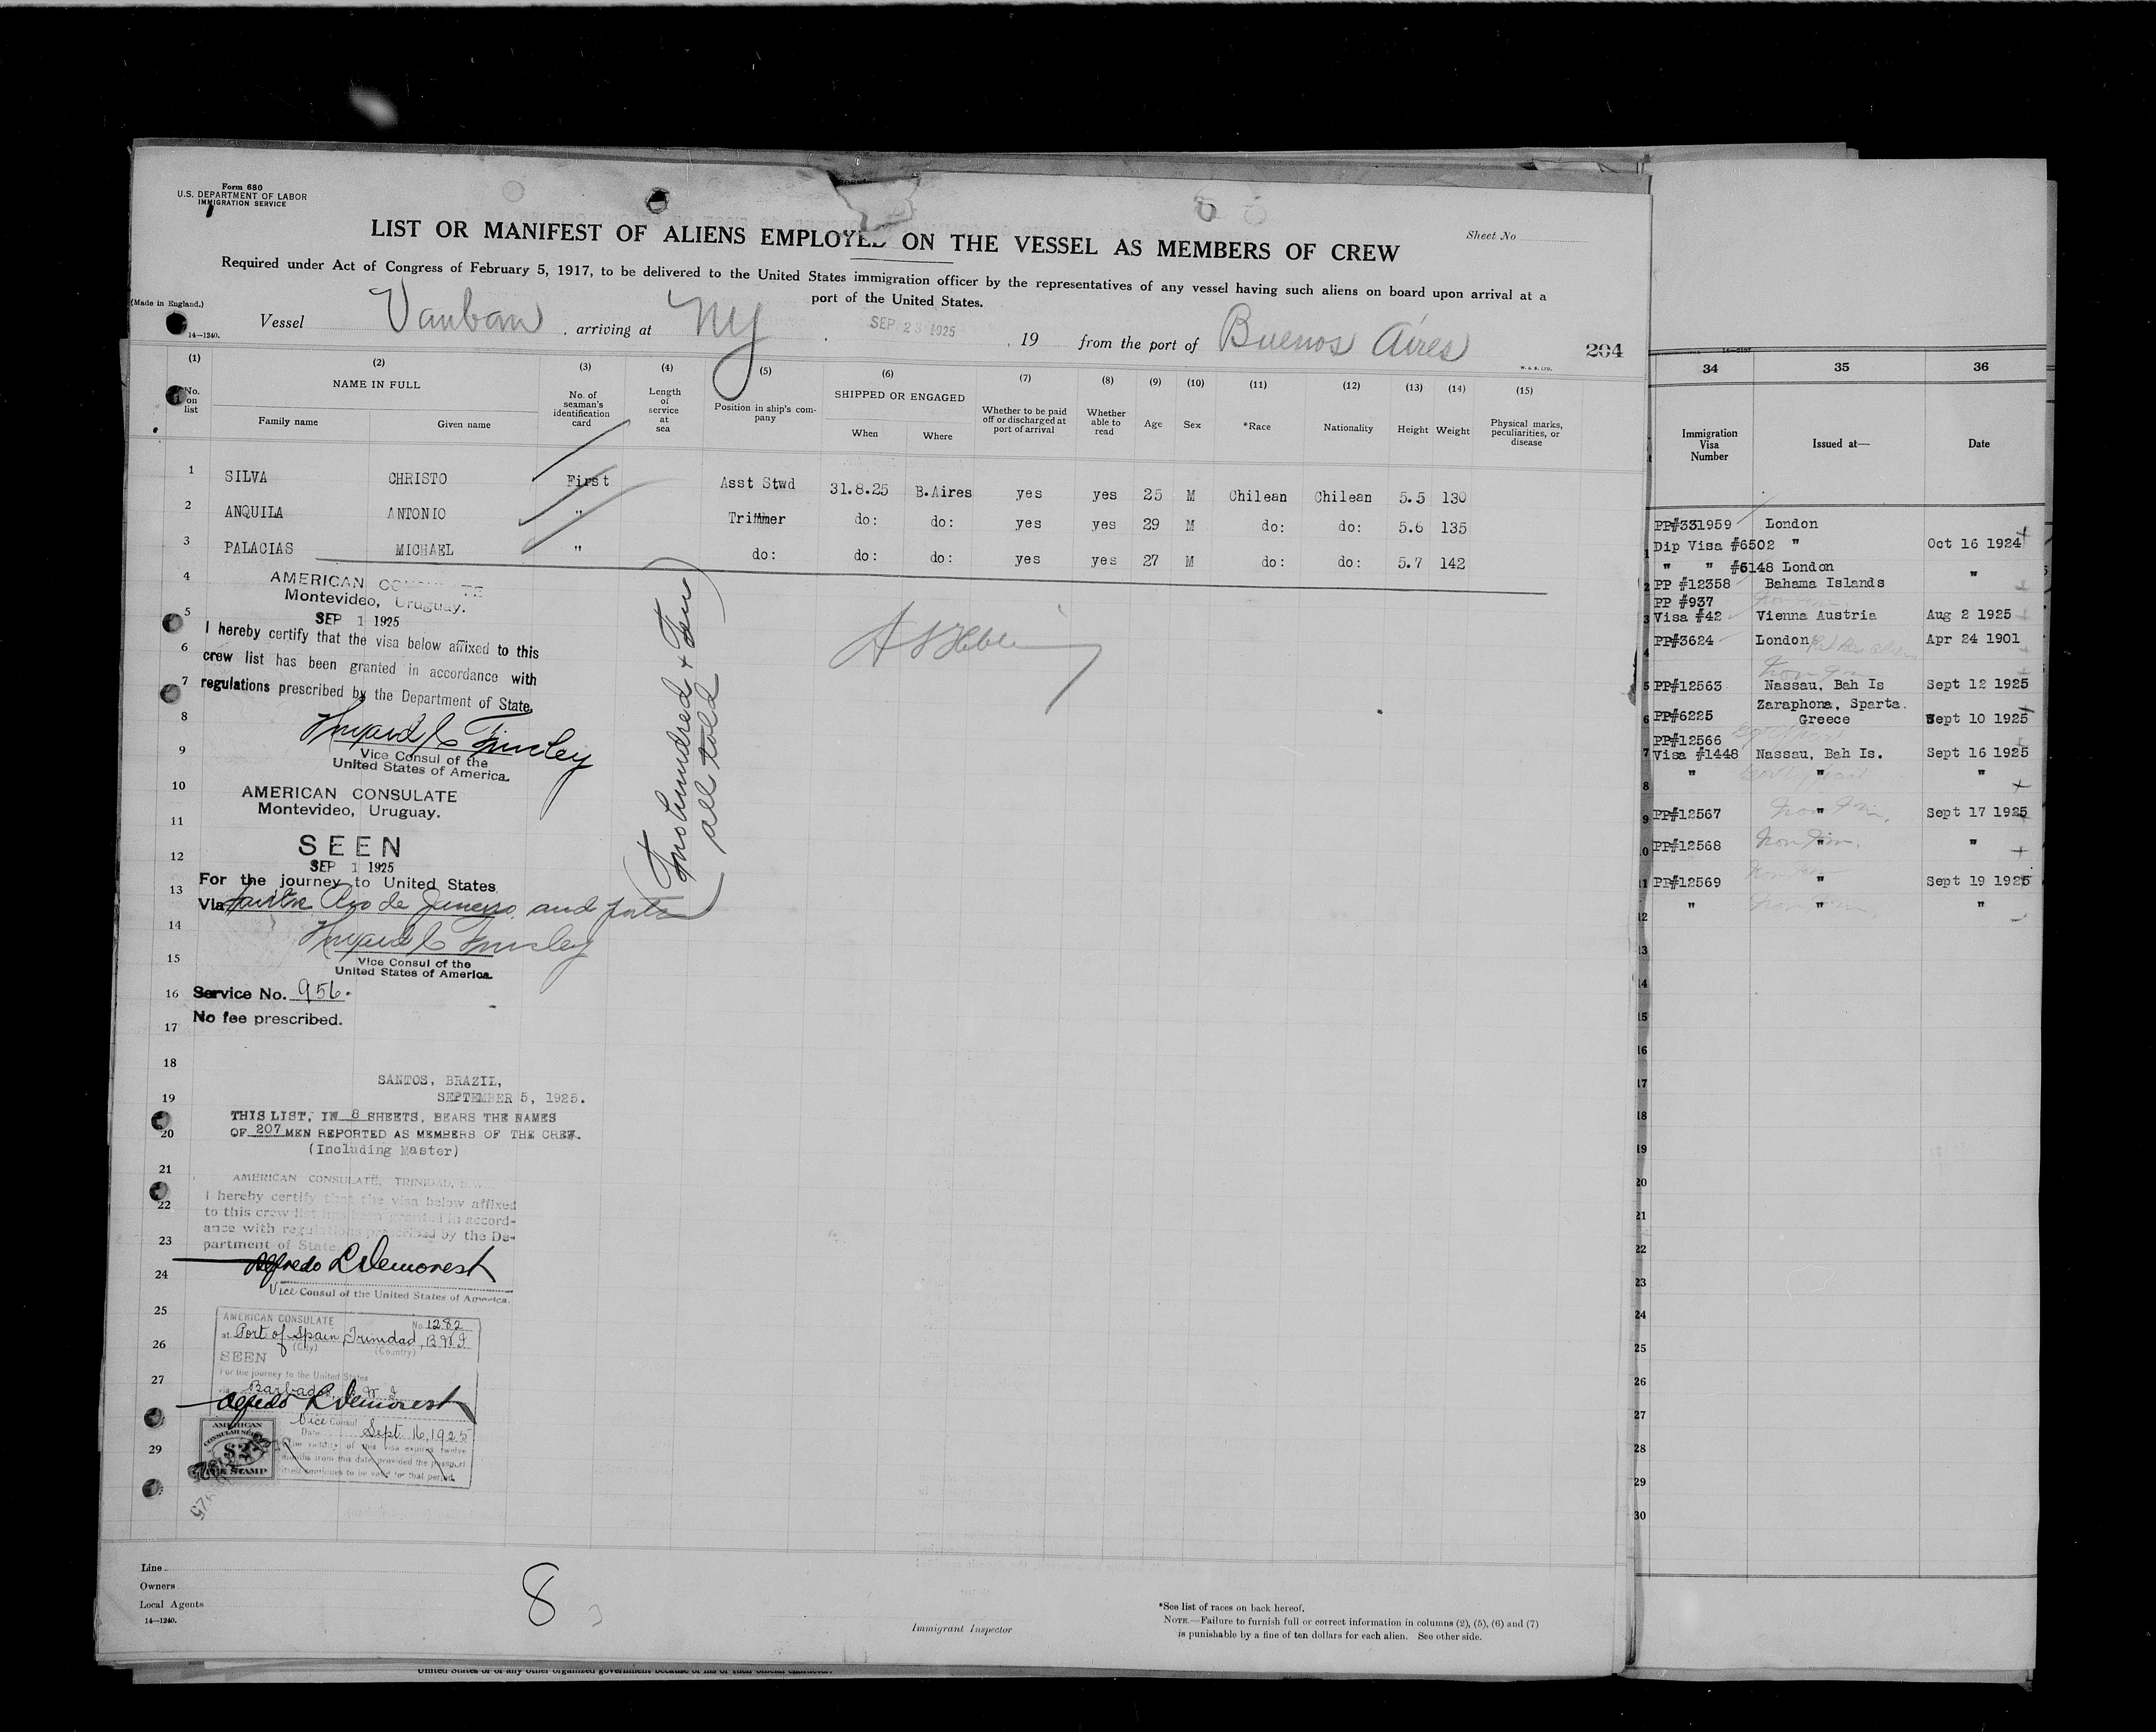 Form 680
U.S. DEPARTMENT OF LABOR
IMMIGRATION SERVICE
LIST OR MANIFEST OF ALIENS EMPLOYED ON THE VESSEL AS MEMBERS OF CREW
Sheet No
Required under Act of Congress of February 5, 1917, to be delivered to the United States immigration officer by the representatives of any vessel having such aliens on board upon arrival at a
port of the United States.
(Made in England.)
14—1240.
Vessel Vauban, arriving at NY SEP 23 1925, 19 from the port of Buenos Aires
204
W. & S. LTD.
(1) (2) (3) (4) (5) (6) (7) (8) (9) (10) (11) (12) (13) (14) (15)
No. on list
NAME IN FULL
Family name Given name
No. of seaman's identification card
Length of service at sea
Position in ship's company
SHIPPED OR ENGAGED
When Where
Whether to be paid off or discharged at port of arrival
Whether able to read
Age Sex *Race Nationality Height Weight
Physical marks, peculiarities, or disease
1 SILVA CHRISTO First Asst Stwd 31.8.25 B.Aires yes yes 25 M Chilean Chilean 5.5 130
2 ANQUILA ANTONIO " Trimmer do: do: yes yes 29 M do: do: 5.6 135
3 PALACIAS MICHAEL " do: do: do: yes yes 27 M do: do: 5.7 142
4
5
6
7
8
9
10
11
12
13
14
15
16
17
18
19
20
21
22
23
24
25
26
27
29
AMERICAN CONSULATE
Montevideo, Uruguay.
SEP 1 1925
I hereby certify that the visa below affixed to this
crew list has been granted in accordance with
regulations prescribed by the Department of State.
Vice Consul of the
United States of America.
Two hundred & Ten
all told
AMERICAN CONSULATE
Montevideo, Uruguay.
SEEN
SEP 1 1925
For the journey to United States
Via Santos Rio de Janeiro and ports
Vice Consul of the
United States of America.
Service No. 956.
No fee prescribed.
SANTOS, BRAZIL,
SEPTEMBER 5, 1925.
THIS LIST, IN 8 SHEETS, BEARS THE NAMES
OF 207 MEN REPORTED AS MEMBERS OF THE CREW.
(Including Master)
AMERICAN CONSULATE, TRINIDAD,
I hereby certify that the visa below affixed
to this crew list has been granted in accord-
ance with regulations prescribed by the De-
partment of State
Alfredo L Demorest
Vice Consul of the United States of America.
AMERICAN CONSULATE
No. 1282
at Port of Spain, Trinidad, B.W.I.
(City) (Country)
SEEN
For the journey to the United States
via Barbados, B.W.I.
Alfredo L Demorest
Vice Consul
Date Sept 16, 1925
The validity of this visa expires twelve
months from this date, provided the passport
itself continues to be valid for that period.
AMERICAN
CONSULAR SERVICE
$2
FEE STAMP
Line
Owners
Local Agents
14—1240.
8
Immigrant Inspector
*See list of races on back hereof.
NOTE.—Failure to furnish full or correct information in columns (2), (5), (6) and (7)
is punishable by a fine of ten dollars for each alien. See other side.
34 35 36
Immigration Visa Number
Issued at—
Date
PP#331959 London
1 Dip Visa #6502 " Oct 16 1924
" " #6148 London "
2 PP #12358 Bahama Islands
PP #937
3 Visa #42 Vienna Austria Aug 2 1925
4 PP#3624 London Apr 24 1901
5 PP#12563 Nassau, Bah Is Sept 12 1925
Zaraphona, Sparta.
6 PP#6225 Greece Sept 10 1925
PP#12566
7 Visa #1448 Nassau, Bah Is. Sept 16 1925
8 " " "
9 PP#12567 " Sept 17 1925
10 PP#12568 " "
11 PP#12569 " Sept 19 1925
12 " " "
13
14
15
16
17
18
19
20
21
22
23
24
25
26
27
28
29
30
United States or of any other organized government because of his or their official character.